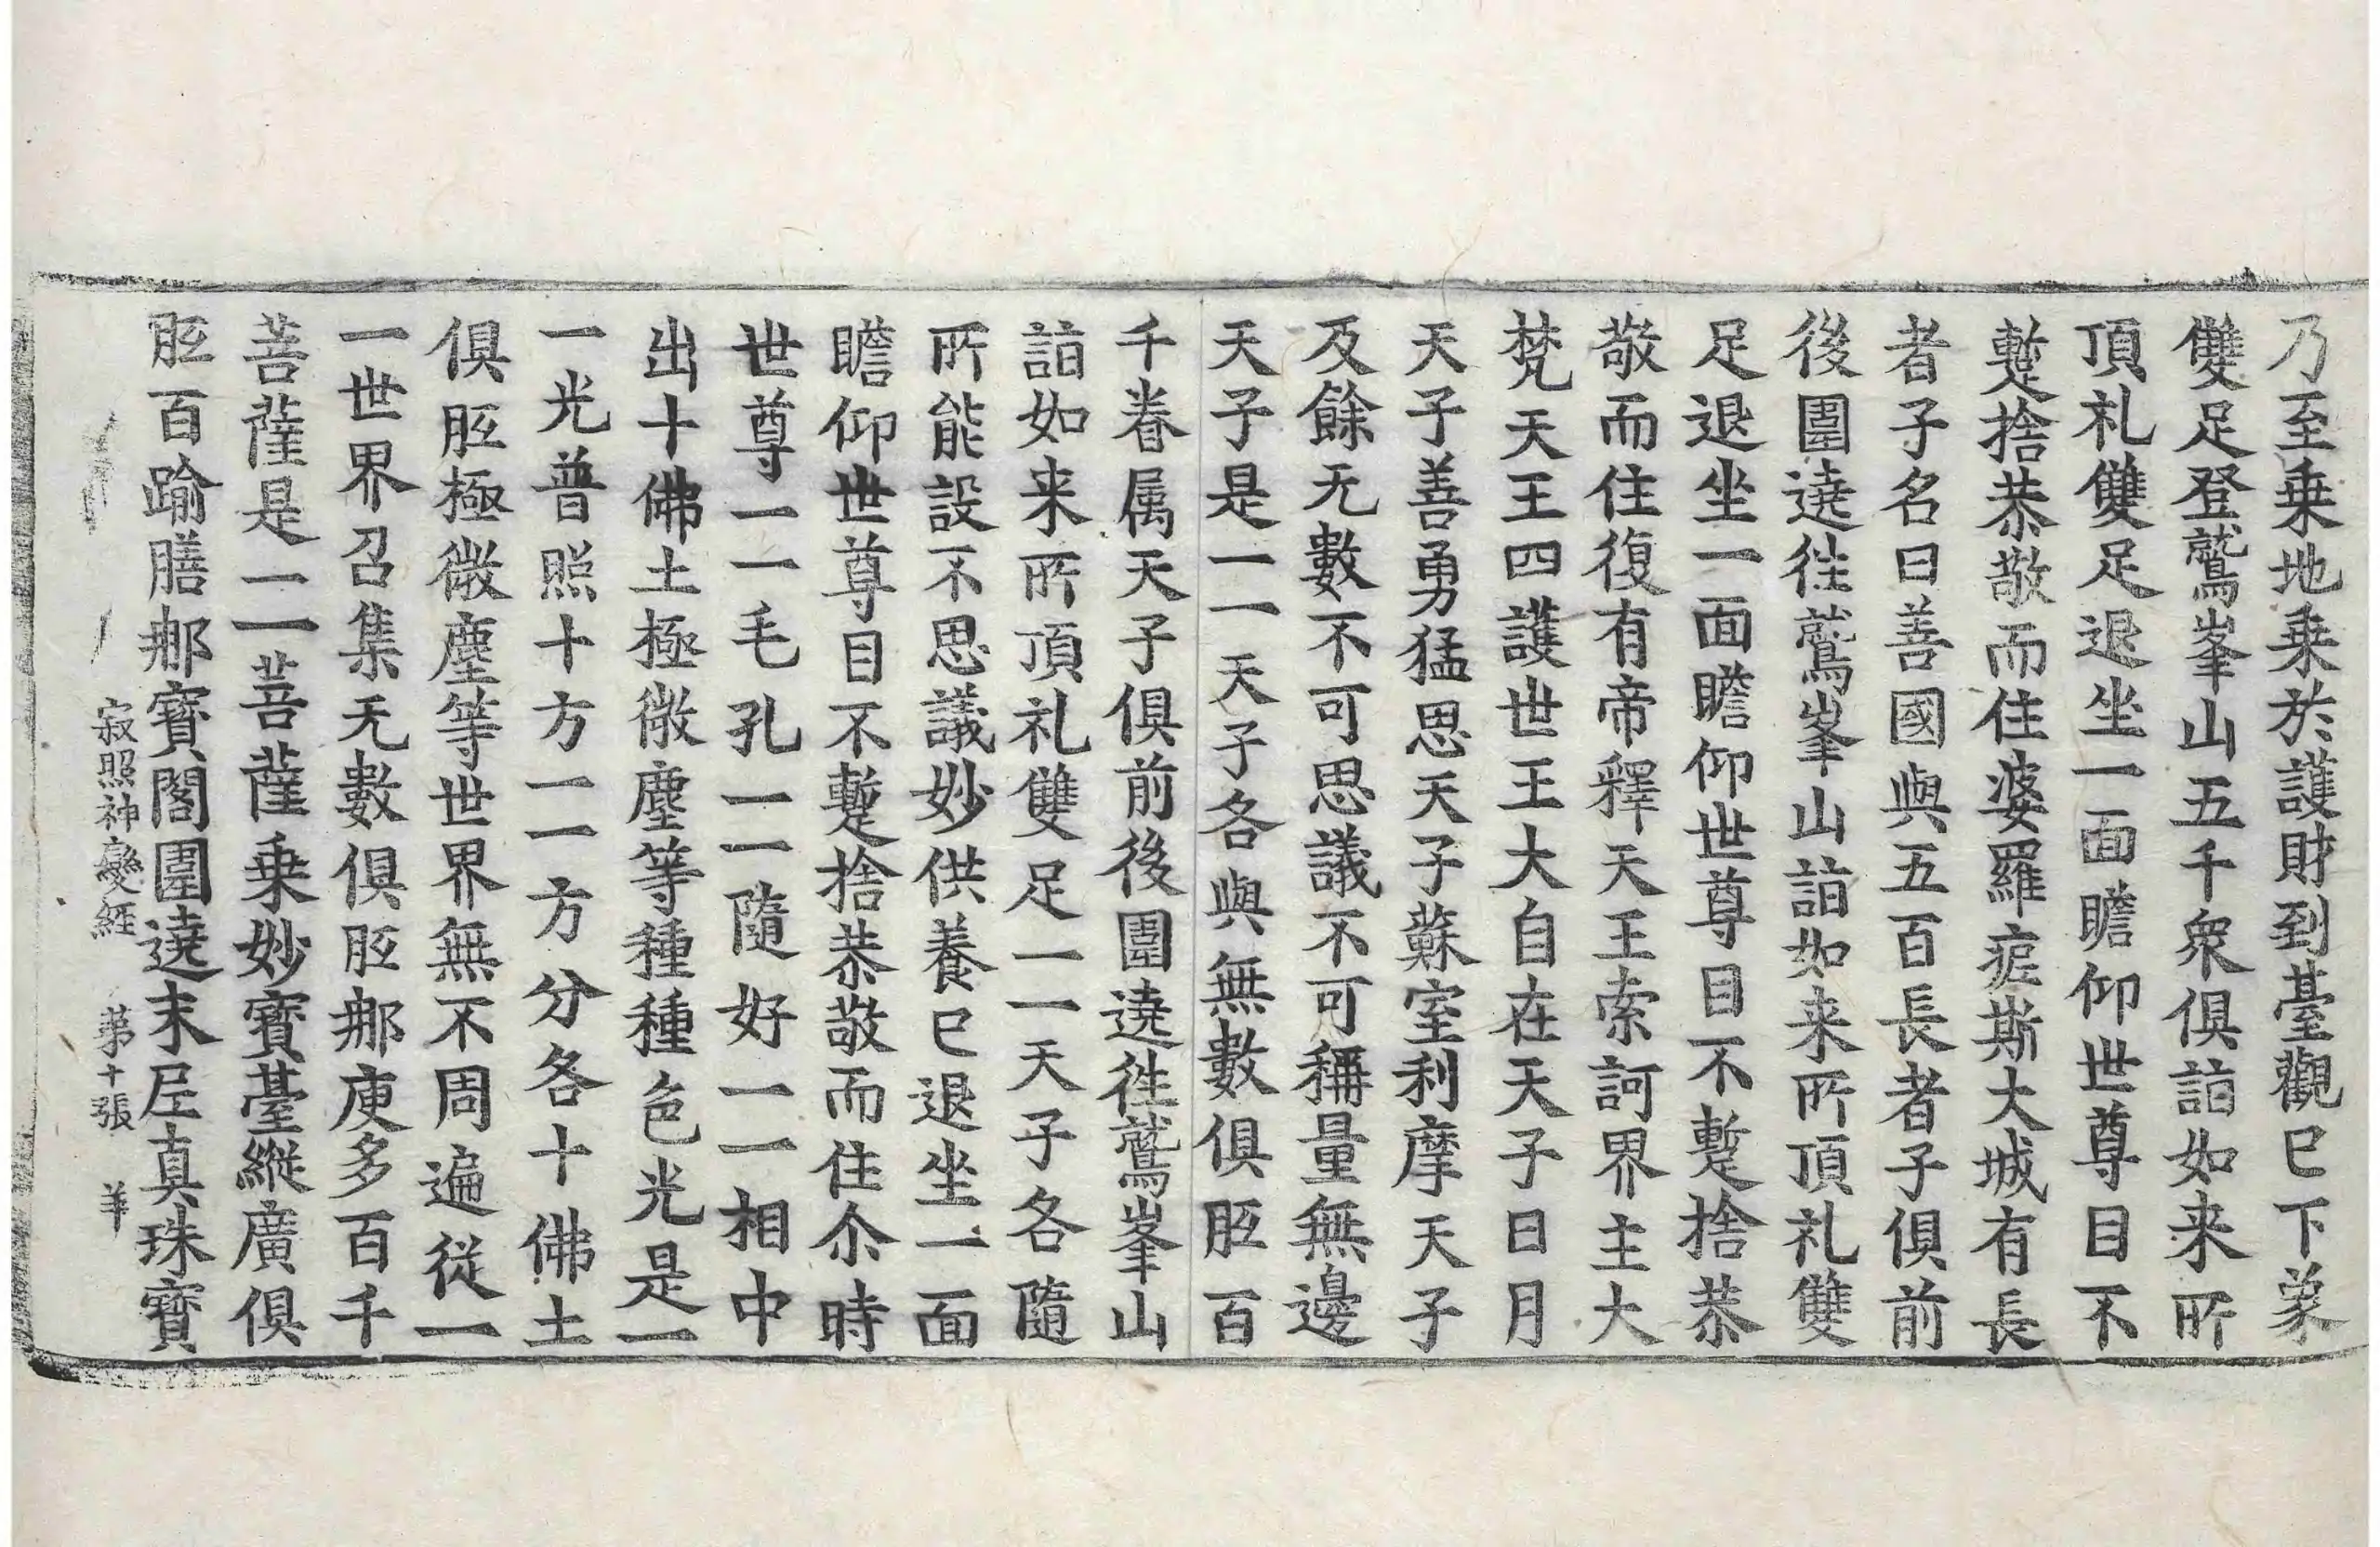 乃至乗地乗於護財到臺觀已下象
雙足登鷲峯山五千衆俱詣如来所
頂礼雙足退坐一面瞻仰世尊目不
蹔捨恭敬而住婆羅痆斯大城有長
者子名曰善國與五百長者子俱前
後圍遶往鷲峯山詣如来所頂礼雙
足退坐一面瞻仰世尊目不蹔捨恭
敬而住復有帝釋天王索訶界主大
梵天王四護世王大自在天子日月
天子善勇猛思天子蘇室利摩天子
及餘无數不可思議不可稱量無邊
天子是一一天子各與無數俱胝百
千眷属天子俱前後圍遶往鷲峯山
詣如来所頂礼雙足一一天子各隨
所能設不思議妙供養已退坐一面
瞻仰世尊目不蹔捨恭敬而住尒時
世尊一一毛孔一一隨好一一相中
出十佛土極微塵等種種色光是一
一光普照十方一一方分各十佛土
俱胝極微塵等世界無不周遍從一
一世界召集无數俱胝那庾多百千
菩薩是一一菩薩乗妙寶臺縱廣俱
胝百踰膳那寶閣圍遶末尼真珠寶
寂照神變經 苐十張 羊